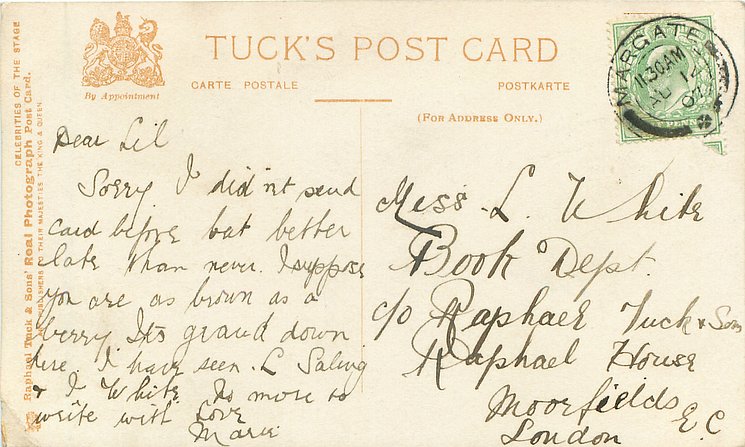 CELEBRITIES OF THE STAGE
Raphael Tuck & Sons' Real Photograph Post Card.
ART PUBLISHERS TO THEIR MAJESTIES THE KING & QUEEN.
By Appointment
TUCK'S POST CARD
CARTE POSTALE
POSTKARTE
(FOR ADDRESS ONLY.)
MARGATE
11.30AM
AU 1
07
PENNY
Dear Lil
Sorry I did'nt send
card before but better
late than never. I suppose
you are as brown as a
berry Its grand down
here. I have seen L
& I White No more to
write with Love
Marie
Miss L. White
Book Dept.
c/o Raphael Tuck & Sons
Raphael House
Moorfields
London E C